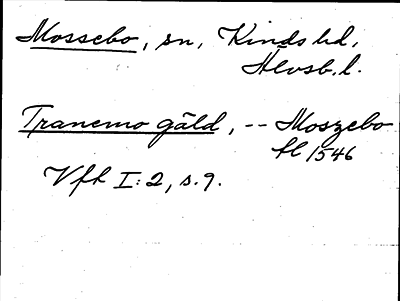 Mossebo, sn, Kinds hd,
Älvsb. l.
Tranemo gäld, -- Moszebo
fl 1546
Vfh I: 2, s. 9.